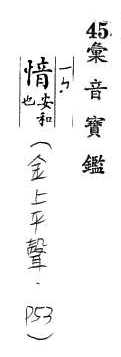 45.彙音寶鑑
ㄧㄣ
愔安和也
(金上平聲．P53)